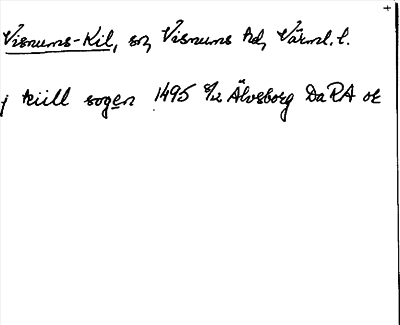 +
Visnums-Kil, sn, Visnums hd, Värml. l.
j kiill sogen 1495 8/12 Älvsborg DaRA or